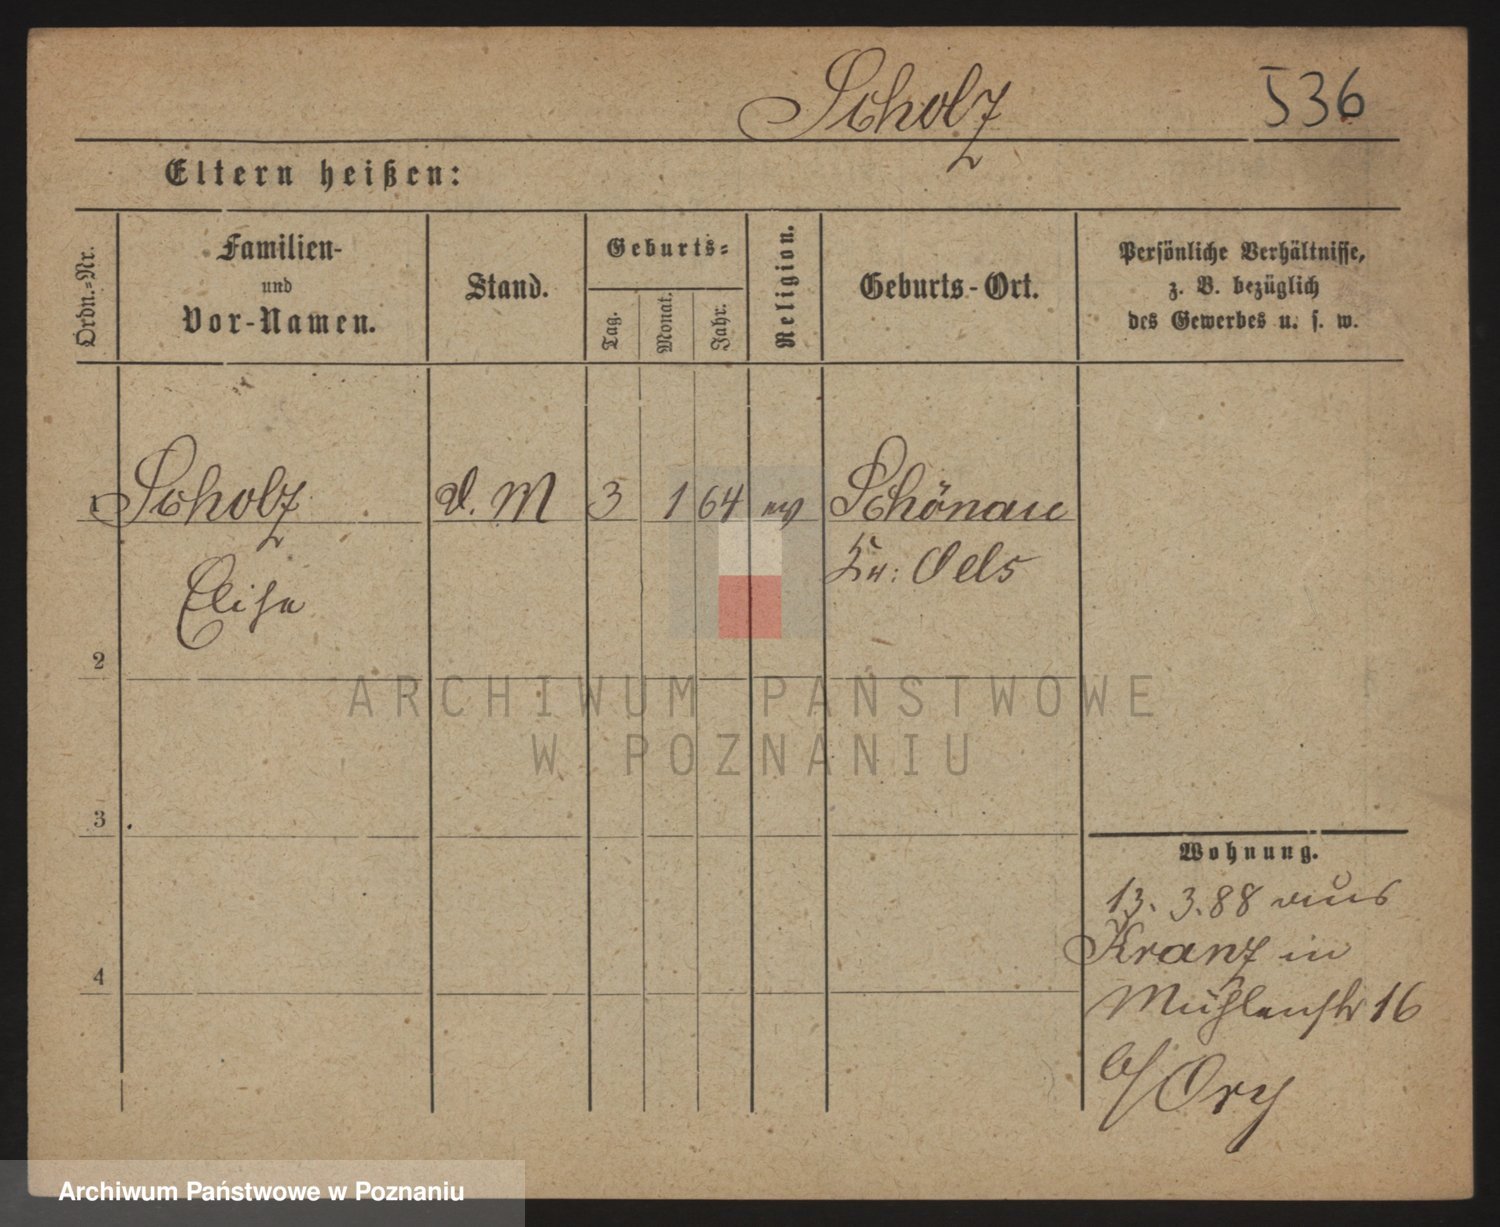 Scholz 536
Eltern heißen:
Ordn.-Nr.
Familien-
und
Vor-Namen.
Stand.
Geburts-
Tag.
Monat.
Jahr.
Religion.
Geburts-Ort.
Persönliche Verhältnisse,
z. B. bezüglich
des Gewerbes u. s. w.
1 Scholz d. M 3 1 64 ev Schönau
Elise Kr: Oels
2
3
4
Wohnung.
13. 3. 88 aus
Kranz in
Mühlenstr 16
b/ Ory
ARCHIWUM PAŃSTWOWE
W POZNANIU
Archiwum Państwowe w Poznaniu